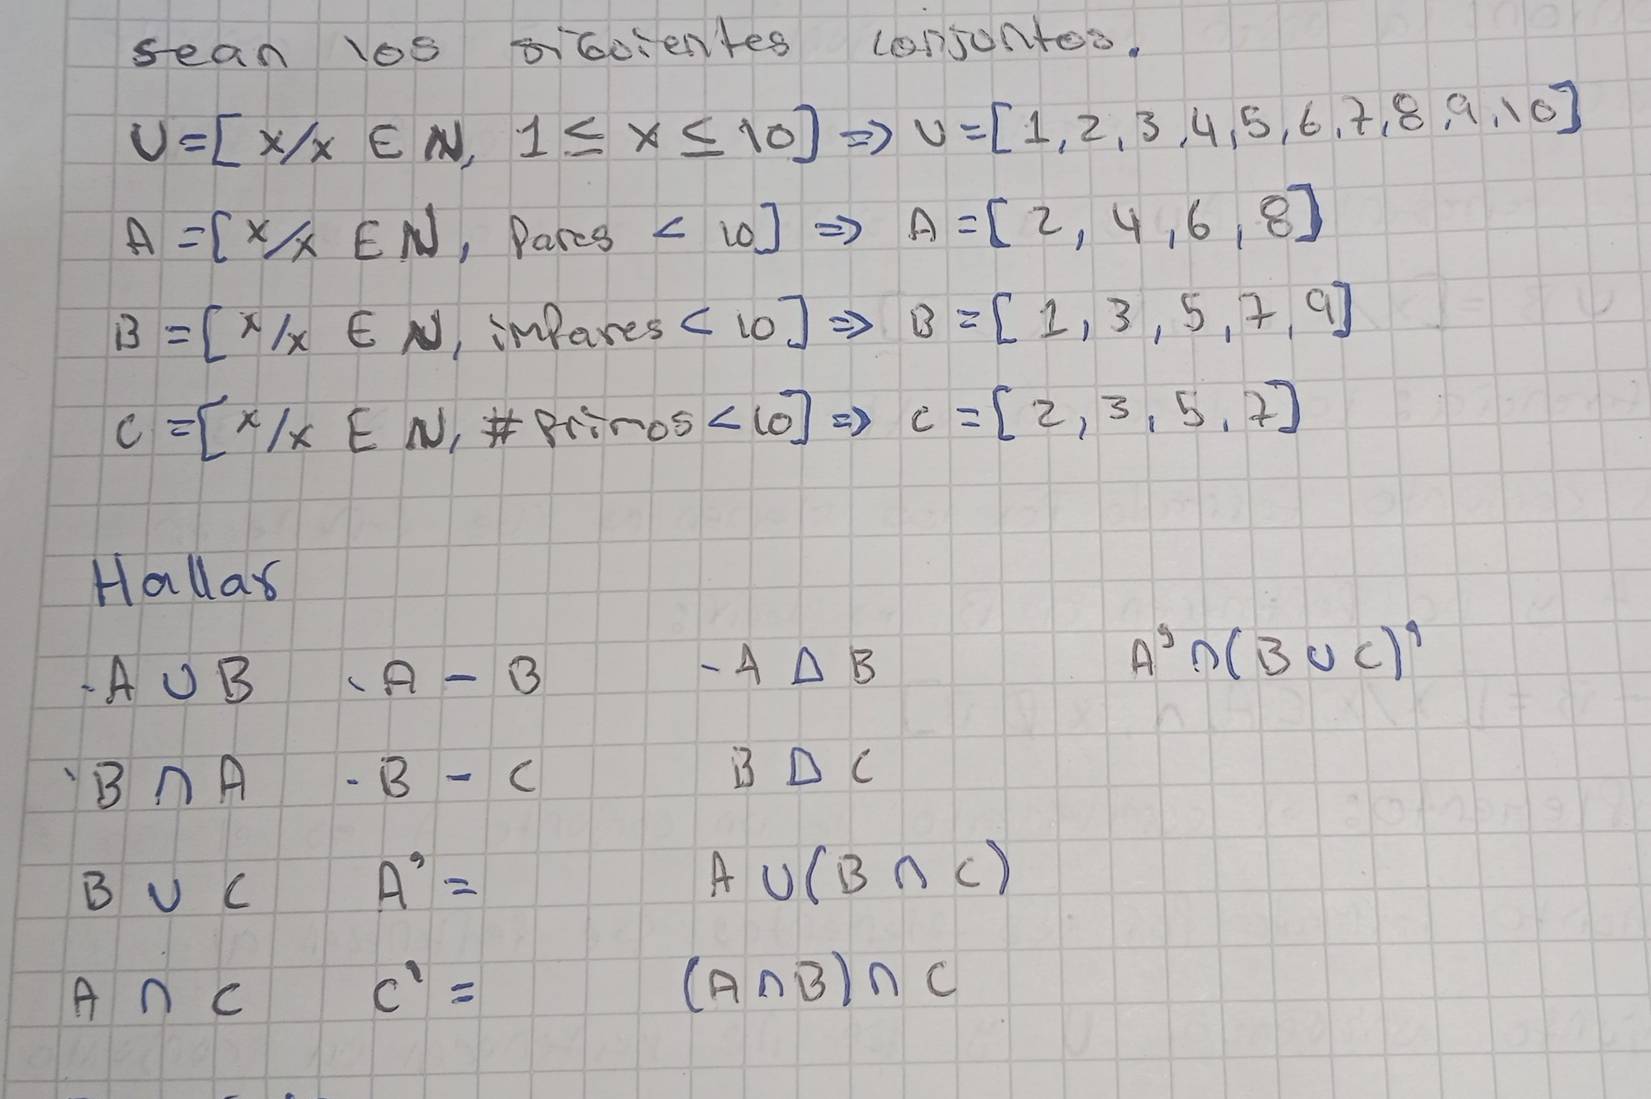 sean los siguientes conjuntos.
U = [ x/x ∈ N, 1 ≤ x ≤ 10 ] ⇒ U = [ 1, 2, 3, 4, 5, 6, 7, 8, 9, 10 ]
A = [ x/x ∈ N, Pares < 10 ] ⇒ A = [ 2, 4, 6, 8 ]
B = [ x/x ∈ N, imPares < 10 ] ⇒ B = [ 1, 3, 5, 7, 9 ]
C = [ x/x ∈ N, # Primos < 10 ] ⇒ C = [ 2, 3, 5, 7 ]
Hallar
- A ∪ B - A - B - A Δ B A' ∩ (B ∪ C)'
- B ∩ A - B - C B Δ C
B ∪ C A' = A ∪ (B ∩ C)
A ∩ C C' = (A ∩ B) ∩ C